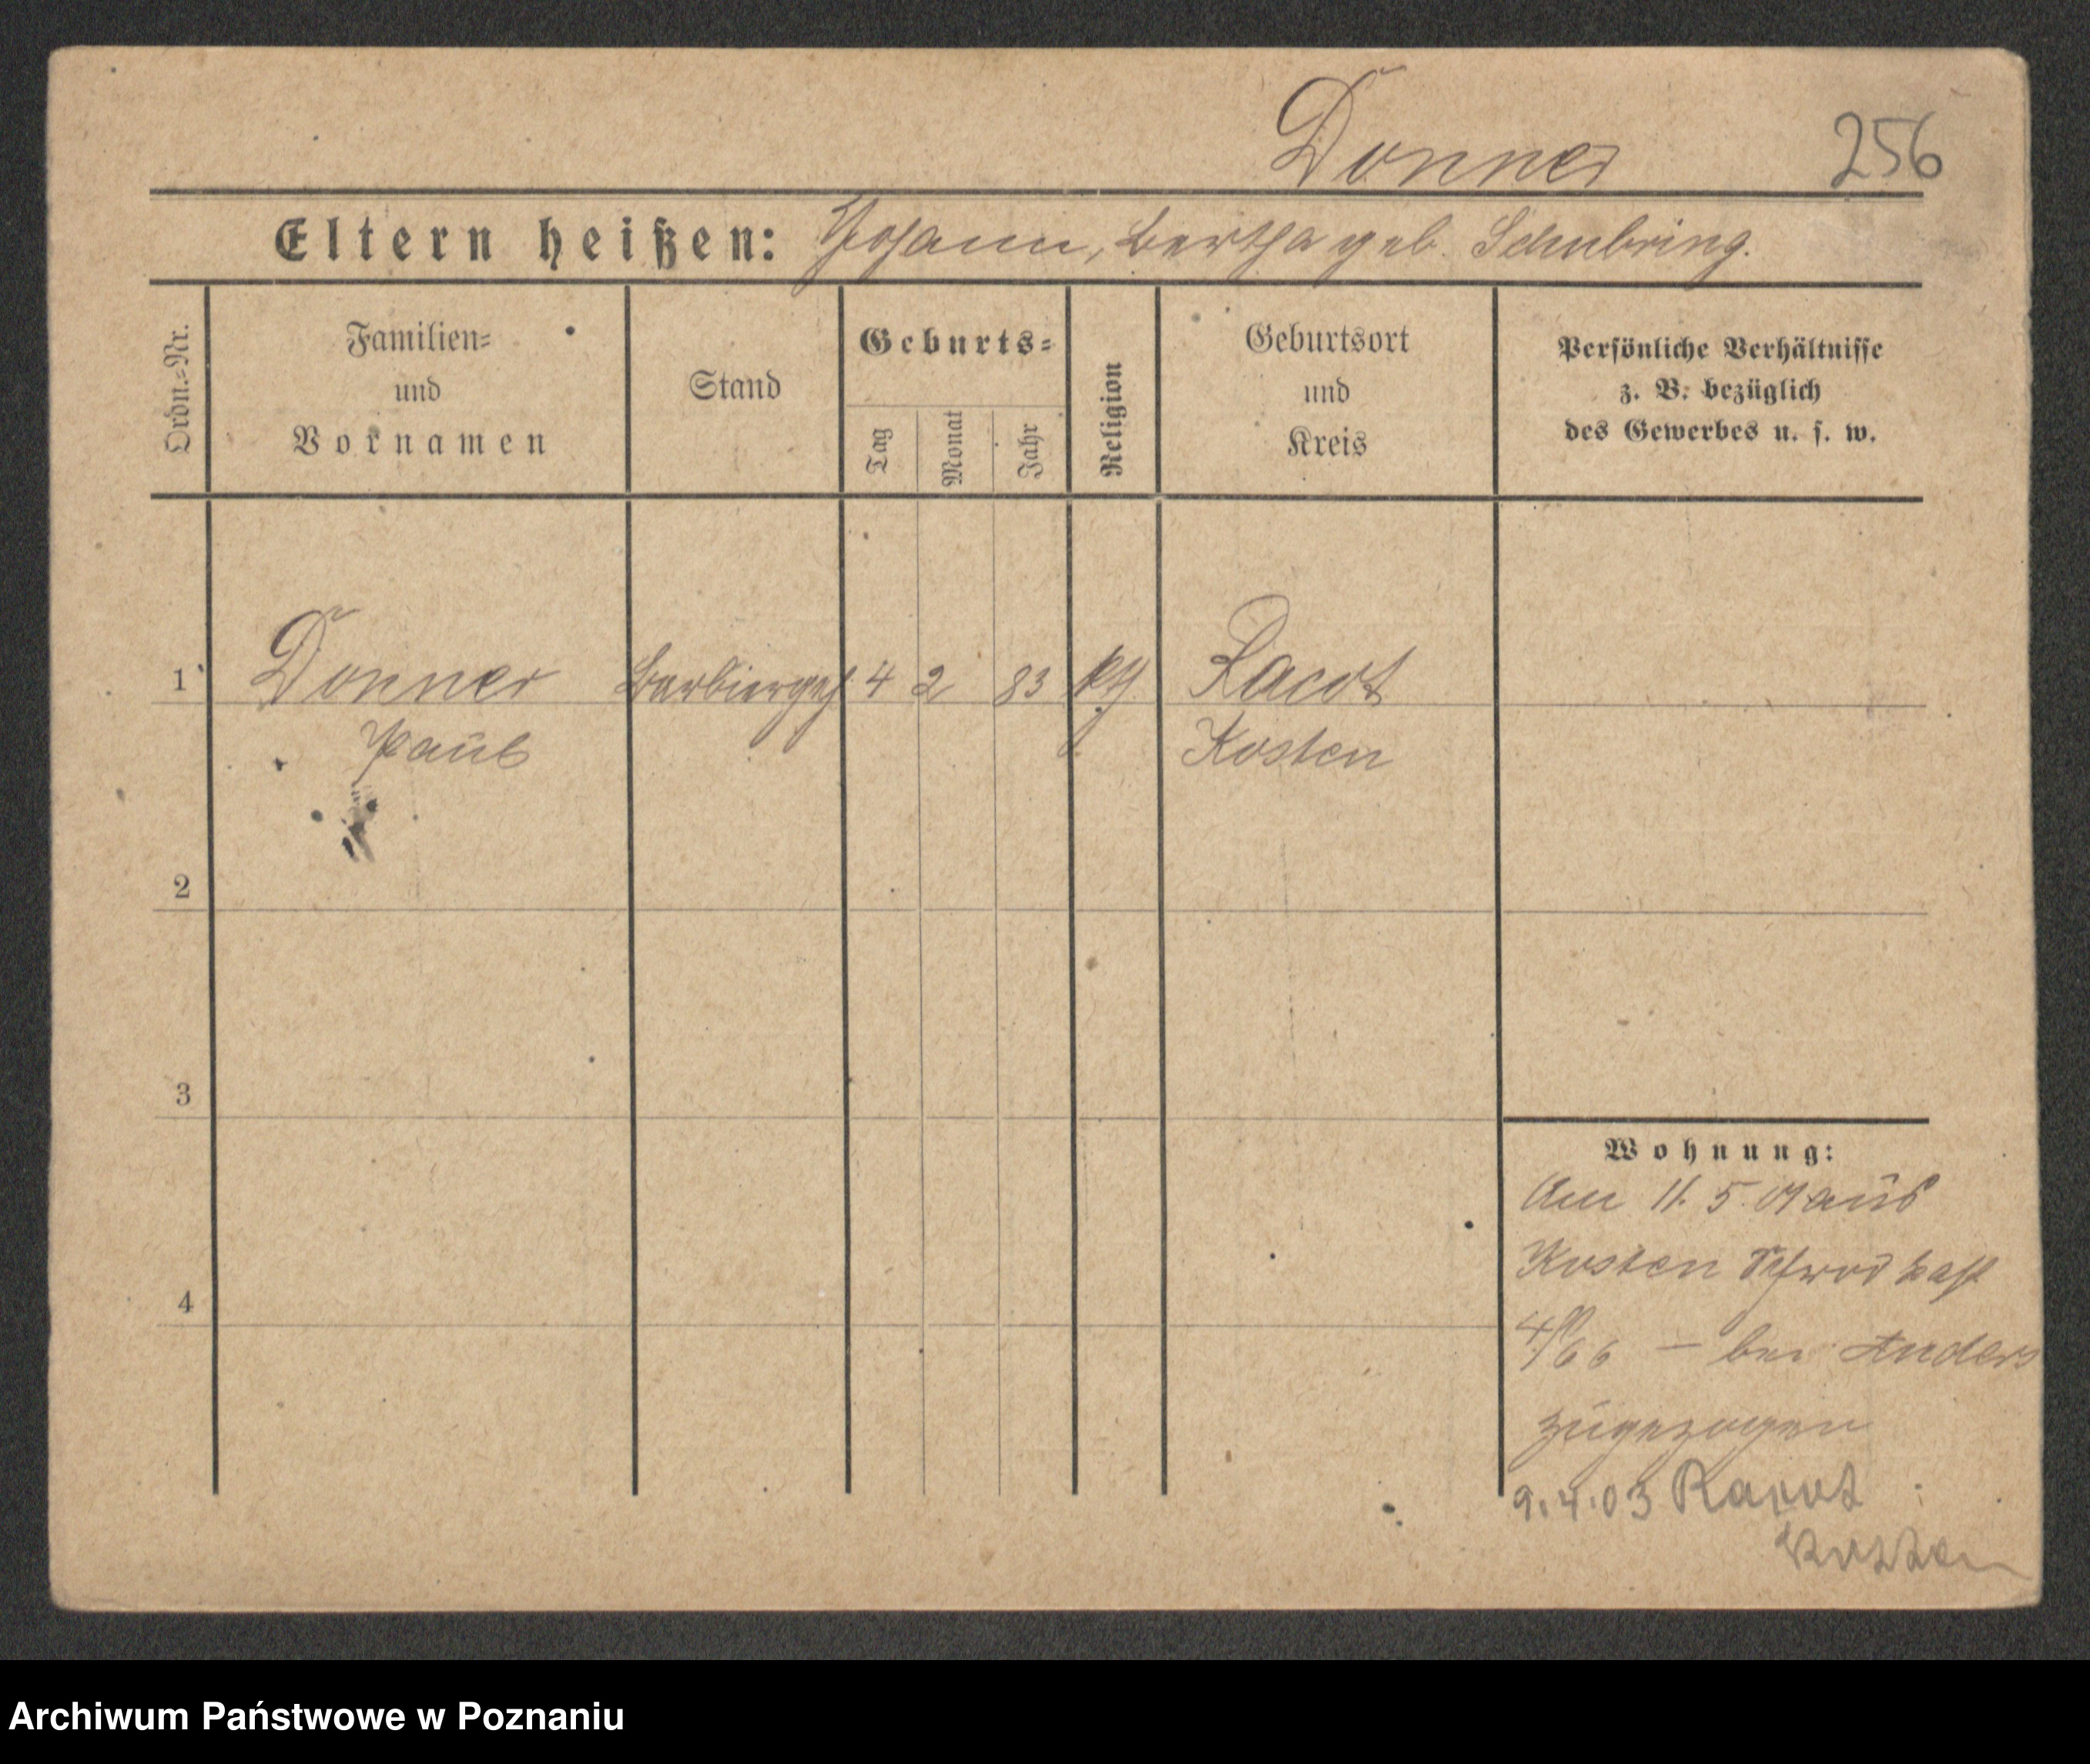 Donner 256
Eltern heißen: Johann, Bertha geb. Schubring.
Ordn.=Nr.
Familien=
und
Vornamen
Stand
Geburts=
Tag
Monat
Jahr
Religion
Geburtsort
und
Kreis
Persönliche Verhältnisse
z. B. bezüglich
des Gewerbes u. s. w.
1 Donner Barbiergeh 4 2 83 kth Racot
Paul Kosten
2
3
4
Wohnung:
Am 11. 5. 01 aus
Kosten
66 – bei Anders
zugezogen
9.4.03 Racot
Kosten
Archiwum Państwowe w Poznaniu